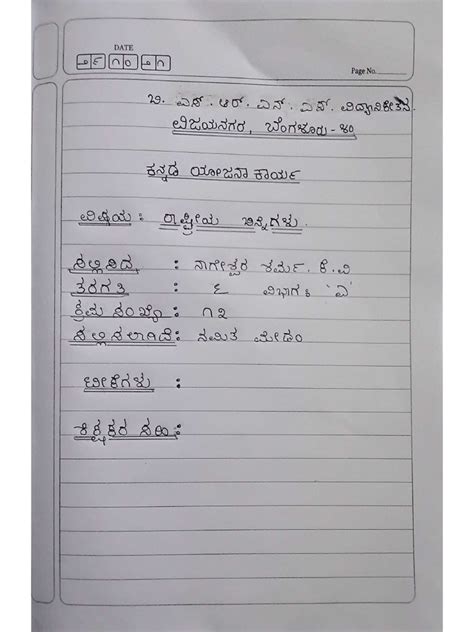 DATE
೨೯ ೧೦ ೨೧
Page No.
ಬಿ. ಎಸ್. ಆರ್. ಎನ್. ಎಸ್. ವಿದ್ಯಾನಿಕೇತನ
ವಿಜಯನಗರ, ಬೆಂಗಳೂರು-೪೦
ಕನ್ನಡ ಯೋಜನಾ ಕಾರ್ಯ
ವಿಷಯ: ರಾಷ್ಟ್ರೀಯ ಚಿನ್ಹೆಗಳು.
ಸಲ್ಲಿಸಿದ : ನಾಗೇಶ್ವರ ಶರ್ಮ. ಕೆ. ವಿ
ತರಗತಿ : ೬ ವಿಭಾಗ: 'ಎ'
ಕ್ರಮ ಸಂಖ್ಯೆ : ೧೩
ಸಲ್ಲಿಸಲಾಗಿದೆ: ನಮಿತ ಮೇಡಂ
ಟೀಕೆಗಳು :